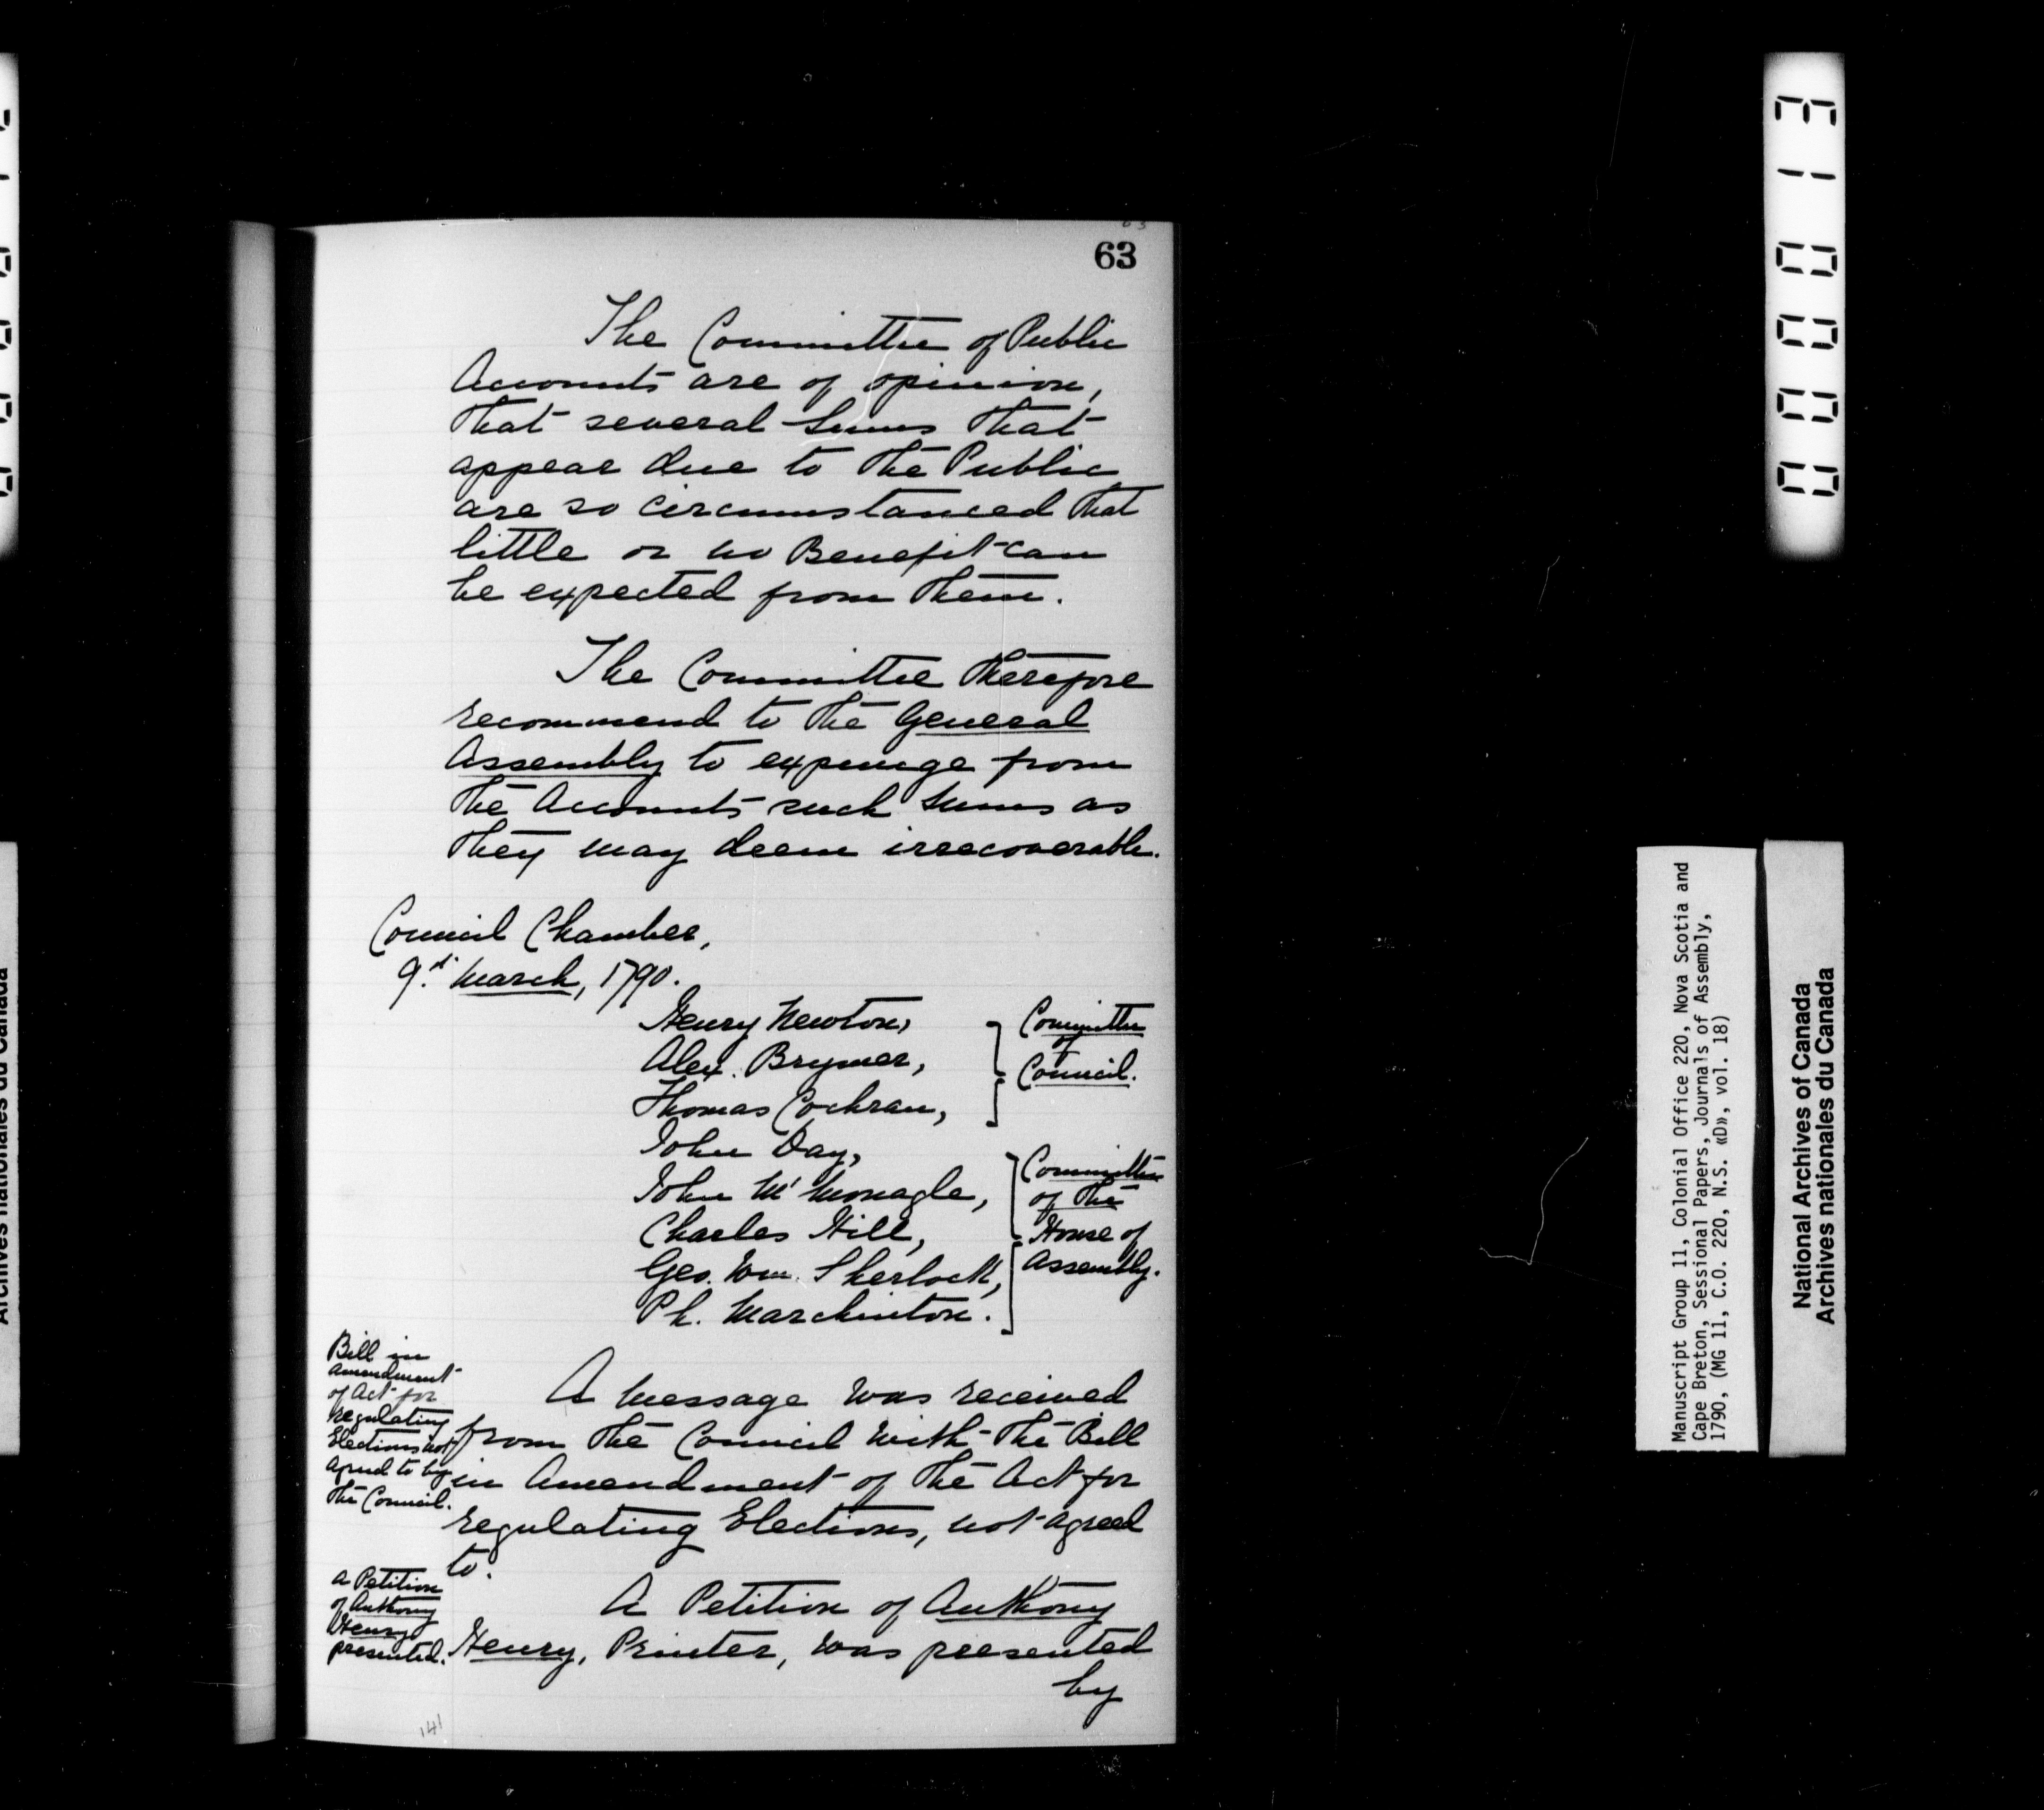 63
The Committee of Public
Accounts are of opinion,
that several Sums that
appear due to the Public
are so circumstanced that
little or no Benefit can
be expected from them.
The Committee therefore
recommend to the General
Assembly to expunge from
the Accounts such Sums as
they may deem irrecoverable.
Council Chamber,
9.th March, 1790.
Henry Newton,
Alex. Brymer,
Thomas Cochran,
Committee
of
Council.
John Day,
John Mc Monagle,
Charles Hill,
Geo. Wm. Sherlock,
Ph. Marchinton.
Committee
of the
House of
Assembly.
Bill in
amendment
of Act for
regulating
Elections not
agreed to by
the Council.
A Message was received
from the Council with the Bill
in Amendment of the Act for
regulating Elections, not agreed
to.
A Petition
of Anthony
Henry
presented.
A Petition of Anthony
Henry, Printer, was presented
by
141
000013
Manuscript Group 11, Colonial Office 220, Nova Scotia and
Cape Breton, Sessional Papers, Journals of Assembly,
1790, (MG 11, C.O. 220, N.S. «D», vol. 18)
National Archives of Canada
Archives nationales du Canada
Archives nationales du Canada